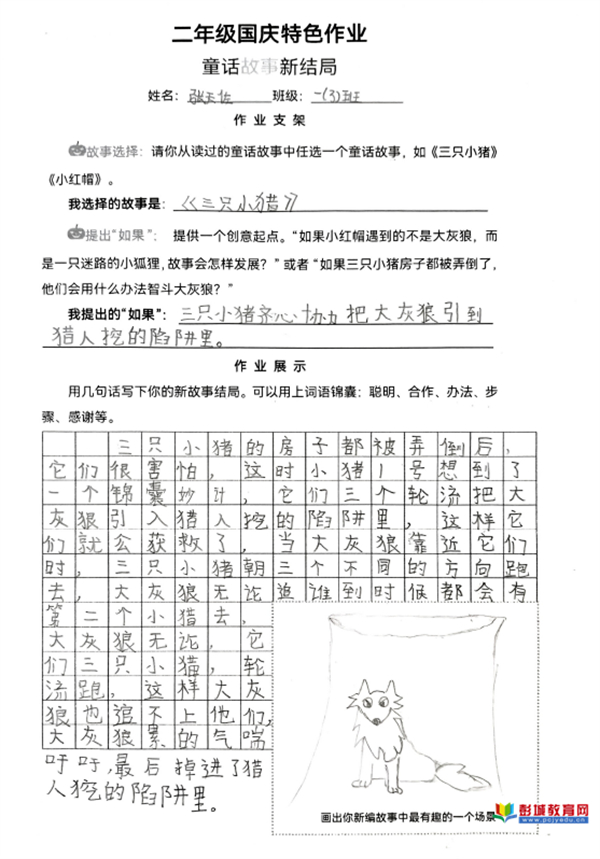 二年级国庆特色作业
童话故事新结局
姓名：张天佐 班级：二(3)班
作业支架
故事选择：请你从读过的童话故事中任选一个童话故事，如《三只小猪》
《小红帽》。
我选择的故事是：《三只小猎》
提出“如果”：提供一个创意起点。“如果小红帽遇到的不是大灰狼，而
是一只迷路的小狐狸，故事会怎样发展？”或者“如果三只小猪房子都被弄倒了，
他们会用什么办法智斗大灰狼？”
我提出的“如果”：三只小猪齐心协力把大灰狼引到
猎人挖的陷阱里。
作业展示
用几句话写下你的新故事结局。可以用上词语锦囊：聪明、合作、办法、步
骤、感谢等。
三只小猪的房子都被弄倒后，
它们很害怕，这时小猪1号想到了
一个锦囊妙计，它们三个轮流把大
灰狼引入猎人挖的陷阱里，这样它
们就会获救了，当大灰狼靠近它们
时，三只小猪朝三个不同的方向跑
去，大灰狼无论追谁到时候都会有
第二个小猎去，
大灰狼无论，它
们三只小猎，轮
流跑，这样大灰
狼也追不上他们，
大灰狼累的气喘
吁吁，最后掉进了猎
人挖的陷阱里。
画出你新编故事中最有趣的一个场景
彭城教育网
www.pcjyedu.cn